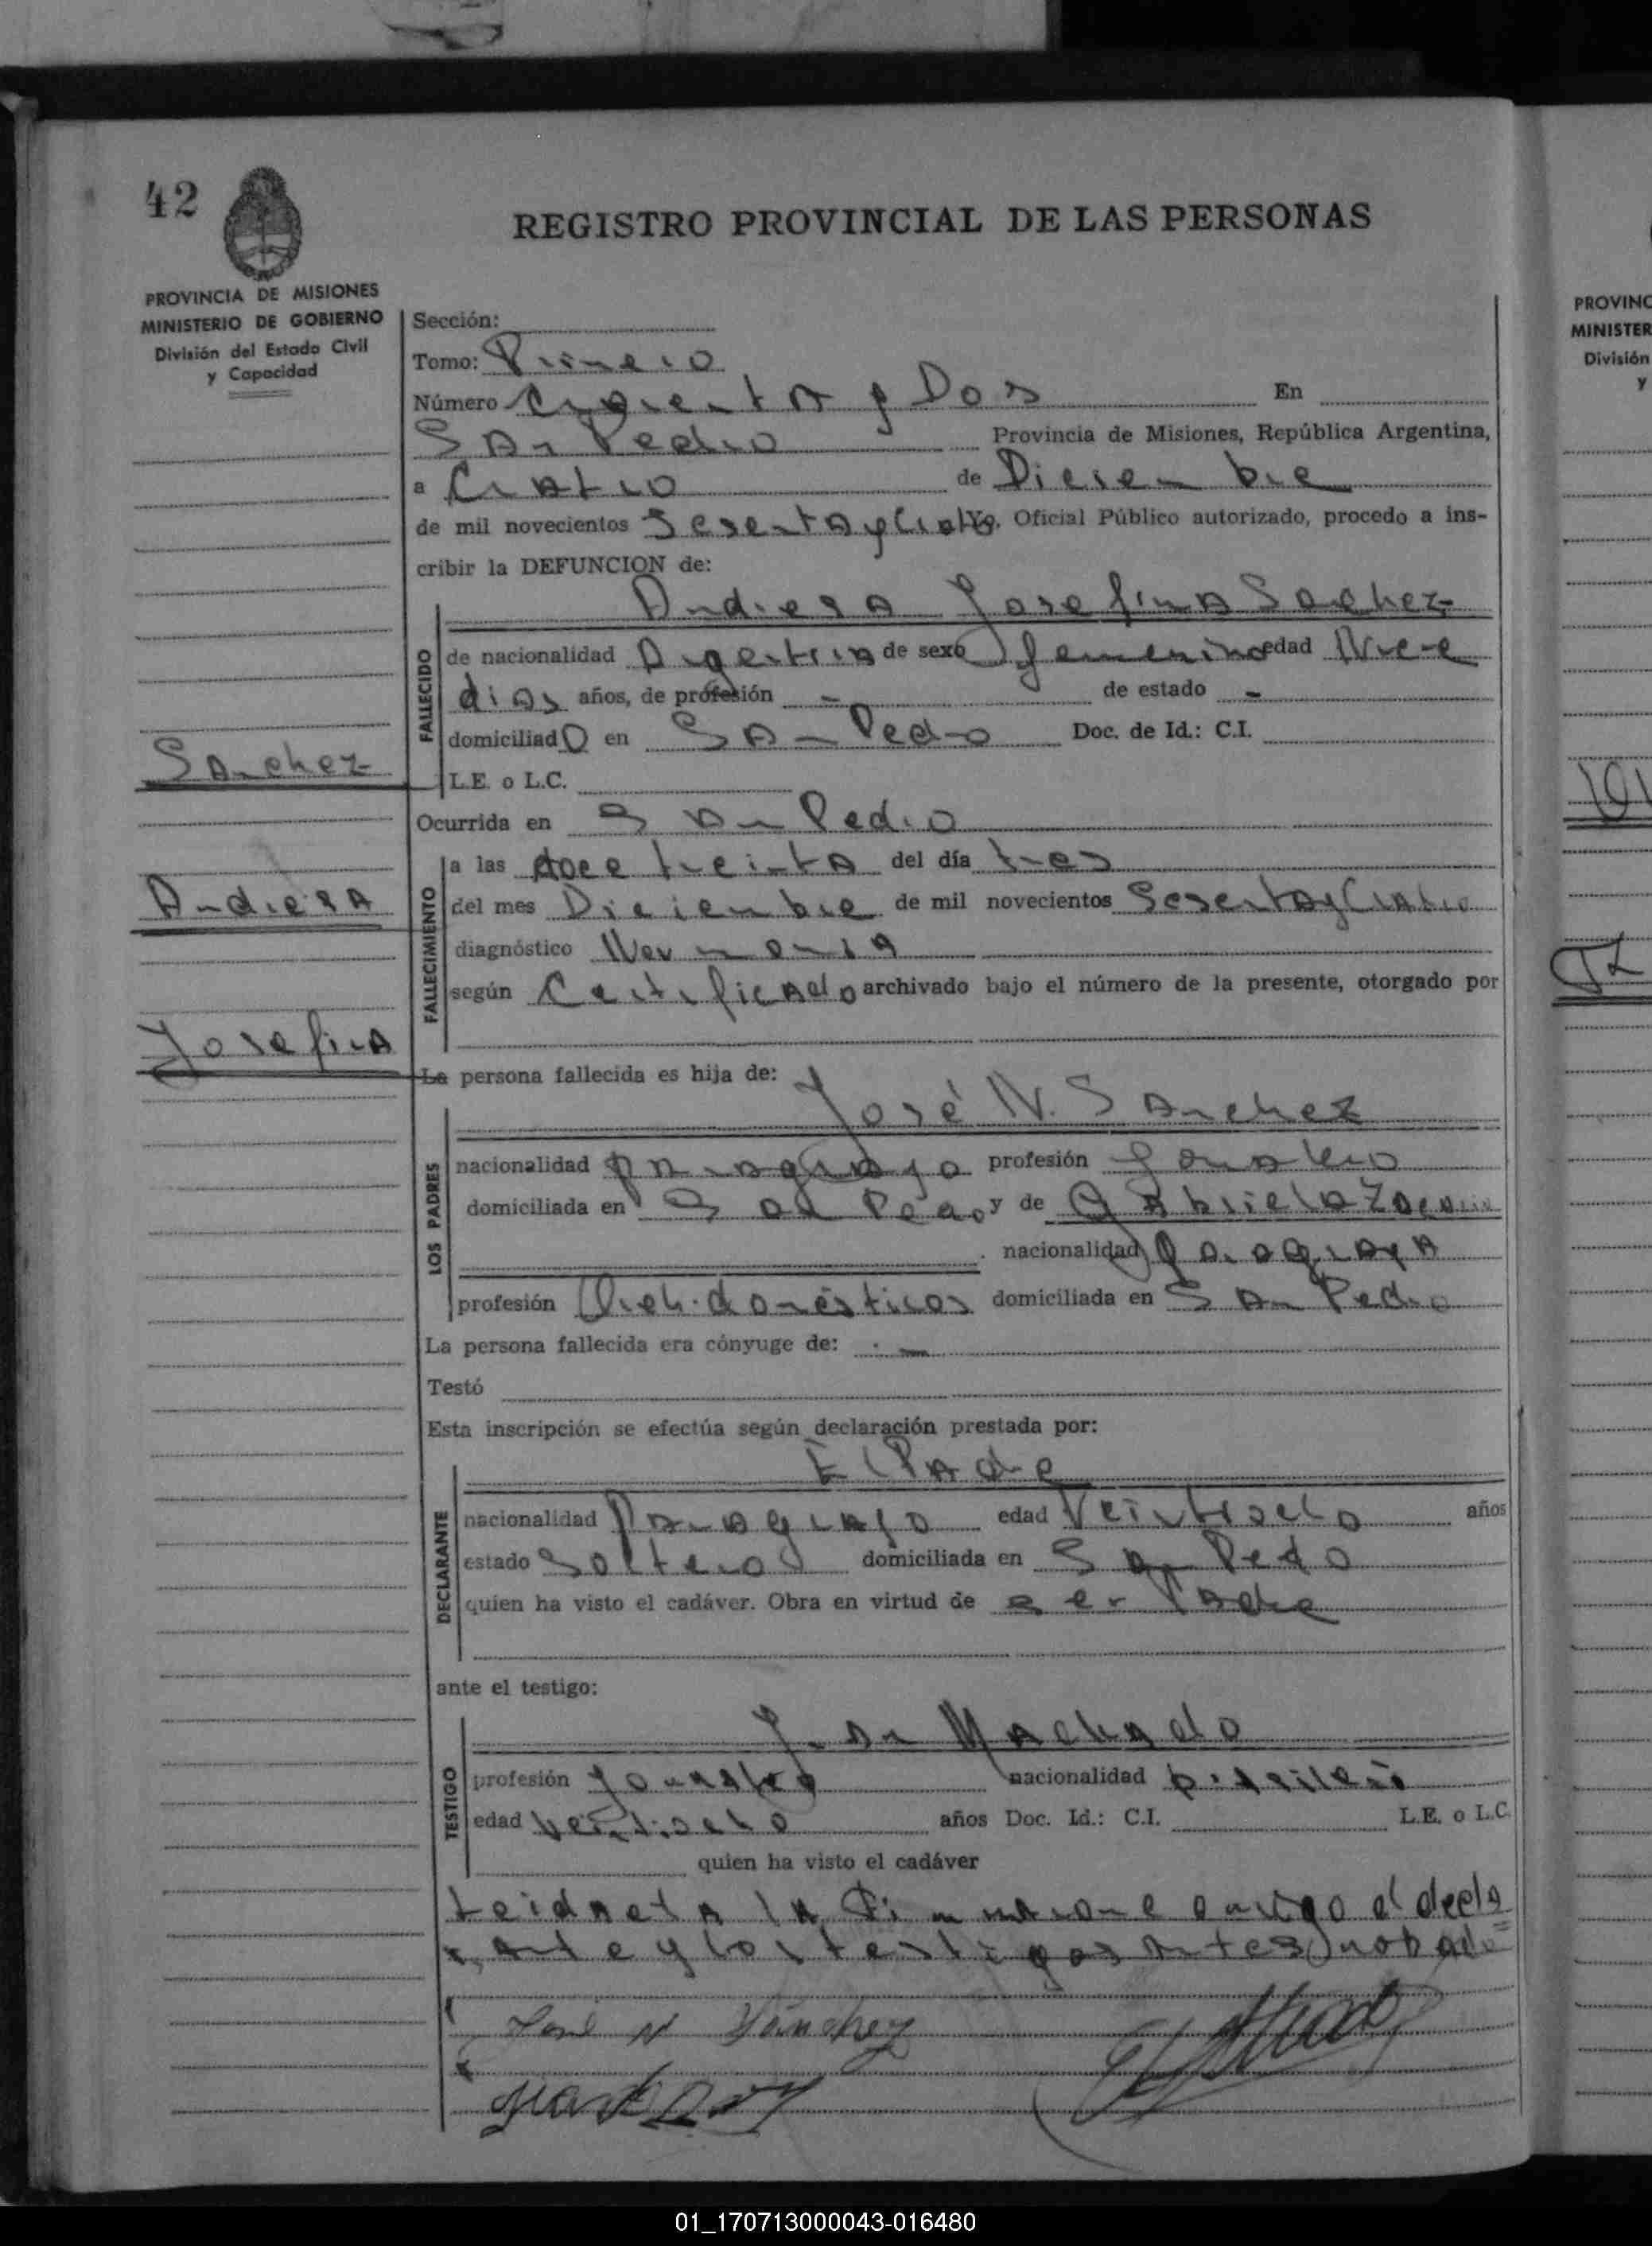 42
REGISTRO PROVINCIAL DE LAS PERSONAS
PROVINCIA DE MISIONES
MINISTERIO DE GOBIERNO
División del Estado Civil
y Capacidad
Sección:
Tomo: Primero
Número Cuarenta y Dos En
San Pedro Provincia de Misiones, República Argentina,
a Cuatro de Diciembre
de mil novecientos Sesenta y Cuatro Yo, Oficial Público autorizado, procedo a ins-
cribir la DEFUNCION de:
FALLECIDO
Andresa Josefina Sanchez
de nacionalidad Argentina de sexo femenino edad Nueve
dias años, de profesión - de estado -
domiciliado en San Pedro Doc. de Id.: C.I.
L.E. o L.C.
Sanchez
Andresa
Josefina
Ocurrida en San Pedro
FALLECIMIENTO
a las doce treinta del día tres
del mes Diciembre de mil novecientos Sesenta y Cuatro
diagnóstico Neumonia
según Certificado archivado bajo el número de la presente, otorgado por
La persona fallecida es hija de:
LOS PADRES
José N. Sanchez
nacionalidad paraguayo profesión Jornalero
domiciliada en San Pedro y de Gabriela
nacionalidad Paraguaya
profesión Queh. domésticos domiciliada en San Pedro
La persona fallecida era cónyuge de: -
Testó
Esta inscripción se efectúa según declaración prestada por:
DECLARANTE
El Padre
nacionalidad Paraguayo edad Veintiocho años
estado Soltero domiciliada en San Pedro
quien ha visto el cadáver. Obra en virtud de ser Padre
ante el testigo:
TESTIGO
Juan Machado
profesión Jornalero nacionalidad brasileño
edad Veintiocho años Doc. Id.: C.I. L.E. o L.C.
quien ha visto el cadáver
Leida el acta la firman conmigo el decla
rante y los testigos antes nombrado
José N Sánchez
PROVINC
MINISTER
División
y
01_170713000043-016480